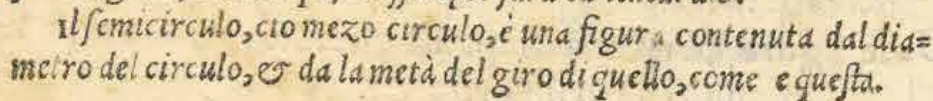 Il ſemicirculo, cio mezo circulo, è una figura contenuta dal dia=
metro del circulo, & da la metà del giro di quello, come e queſta.